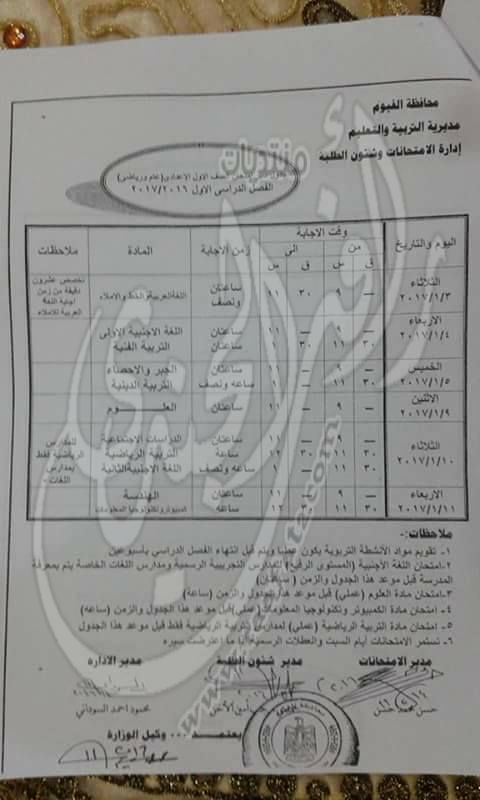 محافظة الفيوم
مديرية التربية والتعليم
إدارة الامتحانات وشئون الطلبة
جدول امتحان الصف الاول الاعدادى (عام ورياضى)
الفصل الدراسى الاول ٢٠١٧/٢٠١٦
اليوم والتاريخ وقت الاجابة زمن الاجابة المادة ملاحظات
من الى
ق س ق س
الثلاثاء ٢٠١٧/١/٣ — ٩ ٣٠ ١١ ساعتان ونصف اللغة العربية والخط والاملاء تخصص عشرون دقيقة من زمن اجابة اللغة العربية للاملاء
الاربعاء ٢٠١٧/١/٤ — ٩ — ١١ ساعتان اللغة الاجنبية الاولى
٣٠ ١١ ٣٠ ١ ساعتان التربية الفنية
الخميس ٢٠١٧/١/٥ — ٩ — ١١ ساعتان الجبر والاحصاء
٣٠ ١١ — ١ ساعه ونصف التربية الدينية
الاثنين ٢٠١٧/١/٩ — ٩ — ١١ ساعتان العلـــوم
الثلاثاء ٢٠١٧/١/١٠ — ٩ — ١١ ساعتان الدراسات الاجتماعية
٣٠ ١١ ٣٠ ١٢ ساعة التربية الرياضية للمدارس الرياضية فقط
٣٠ ١١ — ١ ساعه ونصف اللغة الاجنبية الثانية بمدارس اللغات
الاربعاء ٢٠١٧/١/١١ — ٩ — ١١ ساعتان الهندسة
٣٠ ١١ ١٢ ساعه كمبيوتر وتكنولوجيا المعلومات
ملاحظات:-
١- تقويم مواد الأنشطة التربوية يكون عمليا ويتم قبل انتهاء الفصل الدراسي بأسبوعين
٢- امتحان اللغة الأجنبية (المستوى الرفيع) للمدارس التجريبية الرسمية ومدارس اللغات الخاصة يتم بمعرفة
المدرسة قبل موعد هذا الجدول والزمن (ساعتان)
٣- امتحان مادة العلوم (عملي) قبل هذا الجدول والزمن (ساعة)
٤- امتحان مادة الكمبيوتر وتكنولوجيا المعلومات (عملي) قبل موعد هذا الجدول والزمن (ساعه)
٥- امتحان مادة التربية الرياضية (عملي) لمدارس التربية الرياضية فقط قبل موعد هذا الجدول
٦- تستمر الامتحانات أيام السبت والعطلات الرسمية إذا ما اعترضت سيره
مدير الامتحانات مدير شئون الطلبة مدير الاداره
حسن محمد حسن محمود احمد السودانى
يعتمد ... وكيل الوزارة